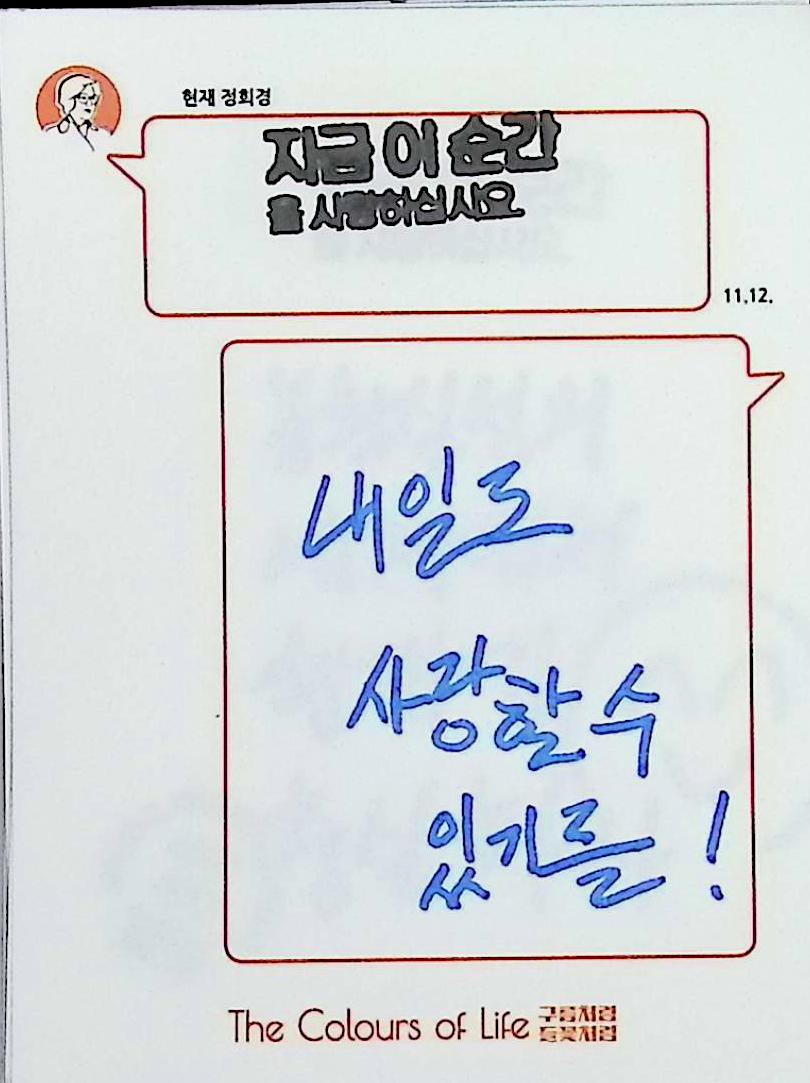 현재 정희경
지금 이 순간
을 사랑하십시오
11.12.
내일도
사랑할 수
있기를!
The Colours of Life 구름처럼
들꽃처럼